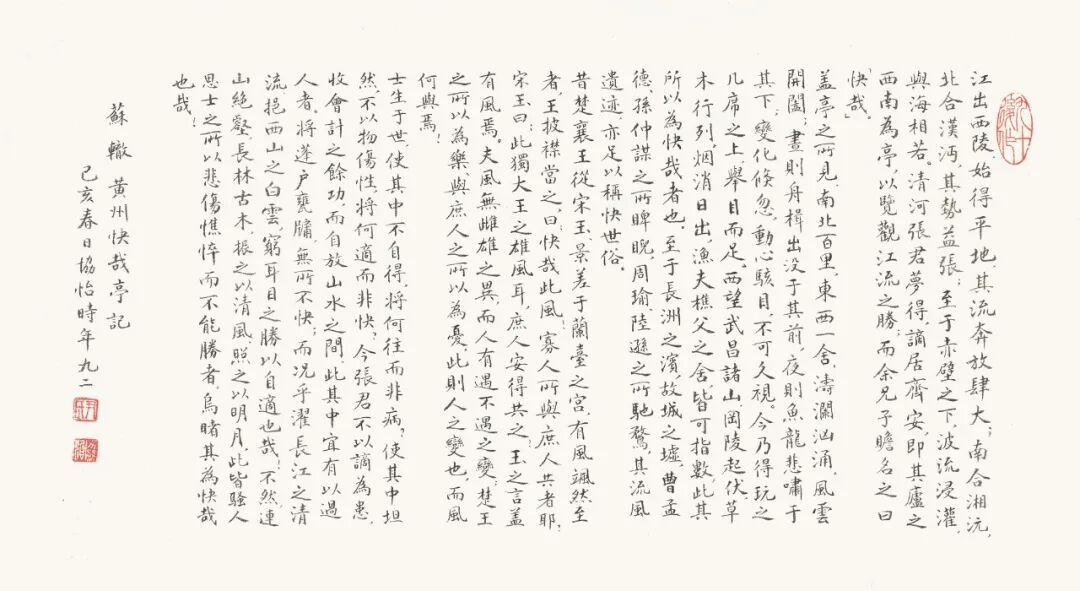 江出西陵始得平地其流奔放肆大；南合湘沅，
北合漢沔，其勢益張；至于赤壁之下，波流浸灌，
與海相若。清河張君夢得，謫居齊安，即其廬之
西南為亭，以覽觀江流之勝；而余兄子瞻名之曰
「快哉」。
蓋亭之所見，南北百里，東西一舍，濤瀾汹涌，風雲
開闔；晝則舟楫出没于其前，夜則魚龍悲嘯于
其下；變化倏忽，動心駭目，不可久視。今乃得玩之
几席之上，舉目而足。西望武昌諸山岡陵起伏，草
木行列，烟消日出，漁夫樵父之舍皆可指數，此其
所以為快哉者也。至于長洲之濱，故城之墟，曹孟
德、孫仲謀之所睥睨，周瑜、陸遜之所馳騖，其流風
遺迹，亦足以稱快世俗。
昔楚襄王從宋玉、景差于蘭臺之宮，有風颯然至
者，王披襟當之，曰：快哉此風！寡人所與庶人共者耶；
宋玉曰：此獨大王之雄風耳，庶人安得共之。玉之言蓋
有風焉。夫風無雌雄之異，而人有遇不遇之變；楚王
之所以為樂，與庶人之所以為憂，此則人之變也，而風
何與焉！
士生于世使其中不自得，將何往而非病？使其中坦
然，不以物傷性，將何適而非快。今張君不以謫為患，
收會計之餘功，而自放山水之間，此其中宜有以過
人者。將蓬户甕牖，無所不快；而况乎濯長江之清
流挹西山之白雲，窮耳目之勝以自適也哉！不然，連
山絕壑，長林古木，振之以清風，照之以明月，此皆騷人
思士之所以悲傷憔悴而不能勝者，烏睹其為快哉
也哉！
蘇轍 黄州快哉亭記
己亥春日協怡時年九二